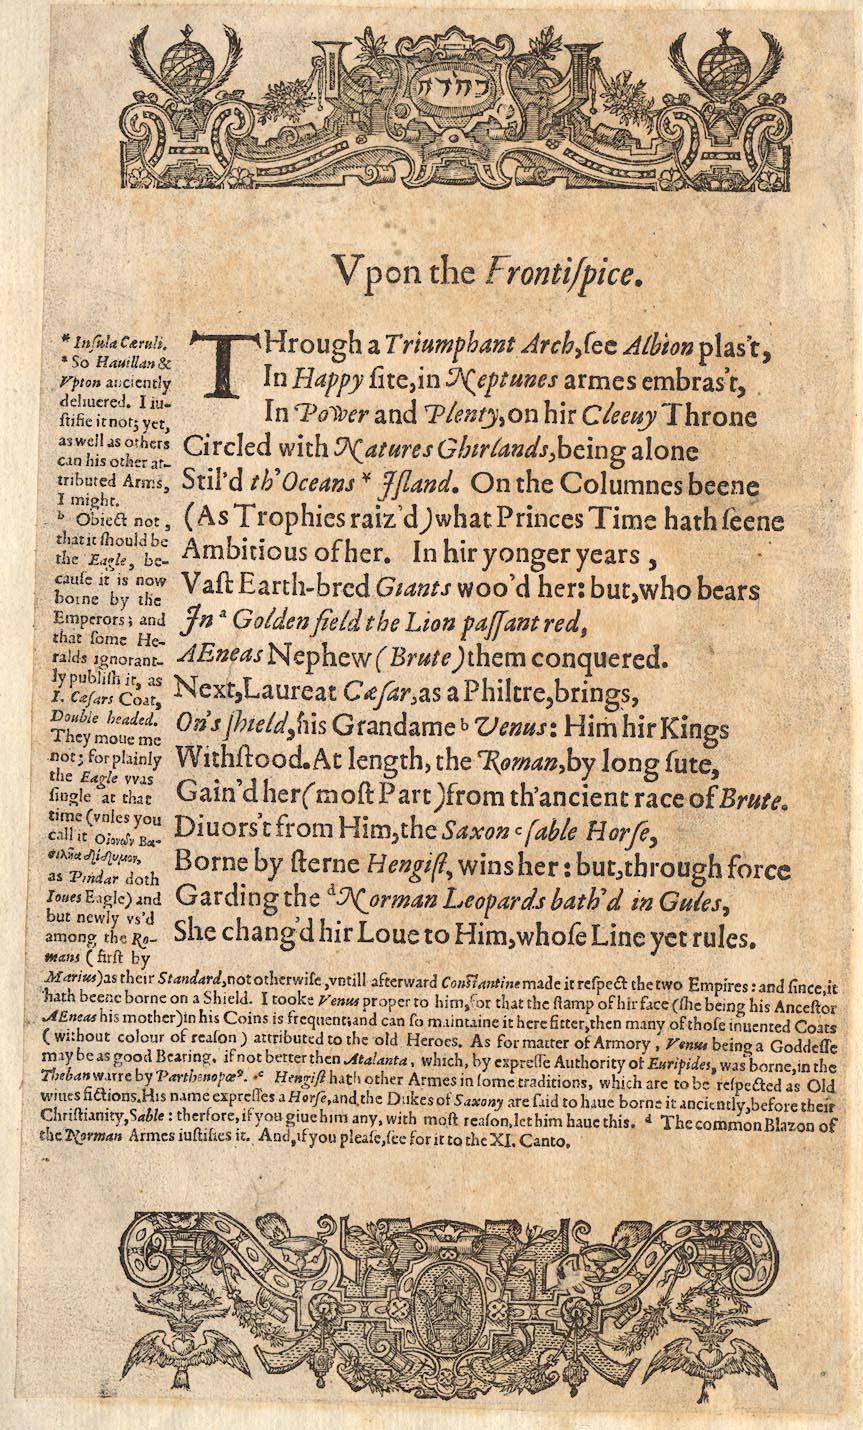 Vpon the Frontiſpice.
THrough a Triumphant Arch, ſee Albion plas't,
In Happy ſite, in Neptunes armes embras't,
In Power and Plenty, on hir Cleeuy Throne
Circled with Natures Ghirlands, being alone
Stil'd th' Oceans * Iſland. On the Columnes beene
(As Trophies raiz'd) what Princes Time hath ſeene
Ambitious of her. In hir yonger years,
Vaſt Earth-bred Giants woo'd her: but, who bears
In ᵃ Golden field the Lion paſſant red,
AEneas Nephew (Brute) them conquered.
Next, Laureat Cæſar, as a Philtre, brings,
On's ſhield, his Grandame ᵇ Venus: Him hir Kings
Withſtood. At length, the Roman, by long ſute,
Gain'd her (moſt Part) from th'ancient race of Brute.
Diuors't from Him, the Saxon ᶜ ſable Horſe,
Borne by ſterne Hengiſt, wins her: but, through force
Garding the ᵈ Norman Leopards bath'd in Gules,
She chang'd hir Loue to Him, whoſe Line yet rules.
* Inſula Cæruli.
ᵃ So Hauillan &
Vpton anciently
deliuered. I iu-
ſtifie it not; yet,
as well as others
can his other at-
tributed Arms,
I might.
ᵇ Obiect not,
that it ſhould be
the Eagle, be-
cauſe it is now
borne by the
Emperors; and
that ſome He-
ralds ignorant-
ly publiſh it, as
I. Cæſars Coat,
Double headed.
They moue me
not; for plainly
the Eagle vvas
ſingle at that
time (vnles you
call it
as Pindar doth
Ioues Eagle) and
but newly vs'd
among the Ro-
mans (firſt by
Marius) as their Standard, not otherwiſe, vntill afterward Conſtantine made it reſpect the two Empires: and ſince, it
hath beene borne on a Shield. I tooke Venus proper to him, for that the ſtamp of hir face (ſhe being his Anceſtor
AEneas his mother) in his Coins is frequent; and can ſo maintaine it here fitter, then many of thoſe inuented Coats
(without colour of reaſon) attributed to the old Heroes. As for matter of Armory, Venus being a Goddeſſe
may be as good Bearing, if not better then Atalanta, which, by expreſſe Authority of Euripides, was borne, in the
Theban warre by Parthenopæꝰ. ᶜ Hengiſt hath other Armes in ſome traditions, which are to be reſpected as Old
wiues fictions. His name expreſſes a Horſe, and the Dukes of Saxony are ſaid to haue borne it anciently, before their
Chriſtianity, Sable: therfore, if you giue him any, with moſt reaſon, let him haue this. ᵈ The common Blazon of
the Norman Armes iuſtifies it. And, if you pleaſe, ſee for it to the XI. Canto.